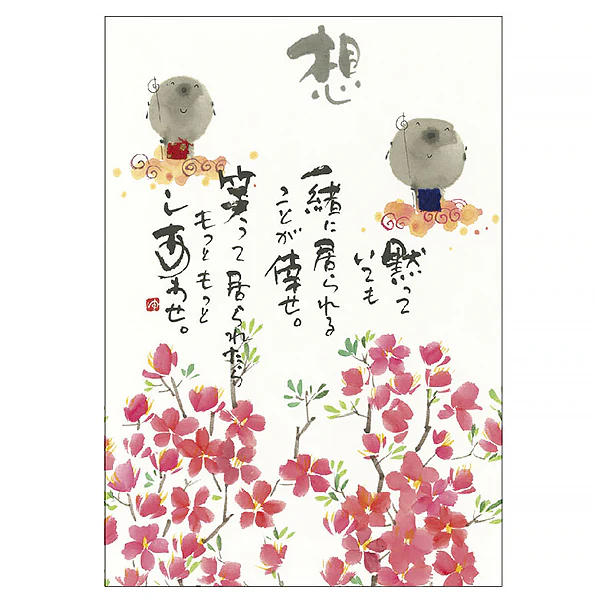 想
黙って
いても
一緒に居られる
ことが倖せ。
笑って居られたら
もっともっと
しあわせ。